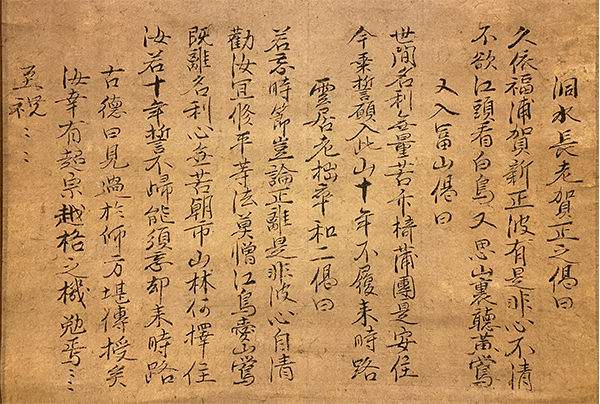 洞水長老賀正之偈曰
久依福浦賀新正波有是非心不清
不欲江頭看白鳥又思山裏聽黄鶯
又入冨山偈曰
世間名利無量苦竹椅蒲團是安住
今乗誓願入此山十年不履来時路
雲居老拙卒和二偈曰
若忘時節豈論正離是非波心自清
勸汝宜修平等法莫憎江鳥愛山鶯
既離名利心無苦朝市山林何擇住
汝若十年誓不歸能須忘却来時路
古德曰見過於師方堪傳授矣
汝幸有超宗越格之機勉焉〻〻
至祝〻〻